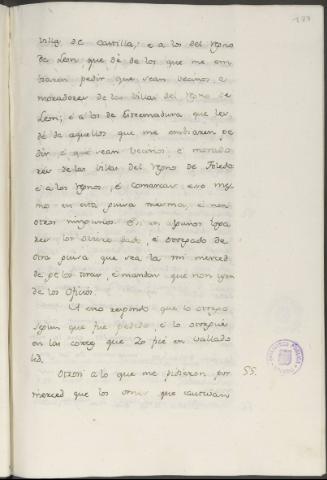 187
villas de Castilla; e a los del Regno
de Leon, que dé de los que me em
biaren pedir que sean vecinos, e
moradores de las villas del regno de
Leon; e a los de Estremadura que les
dé de aquellos que me embiaren pe
dir, e que sean vecinos, e morado
res de las villas del regno de Toledo
e a los Regnos, e comarcas, eso mes
mo en esta guisa mesma, e non
otros ningunos. E si en algunos logares
los dado, e otorgado de
otra guisa que sea la mi merced
de los tirar, e mandar que non usen
de los Oficios.
A esto respondo que lo otorgo
segun que fue pedido, e lo otorgué
en las cortes que Yo fiz en Vallado
lid.
Otrosi a lo que me pidieron por 55.
merced que los omes que